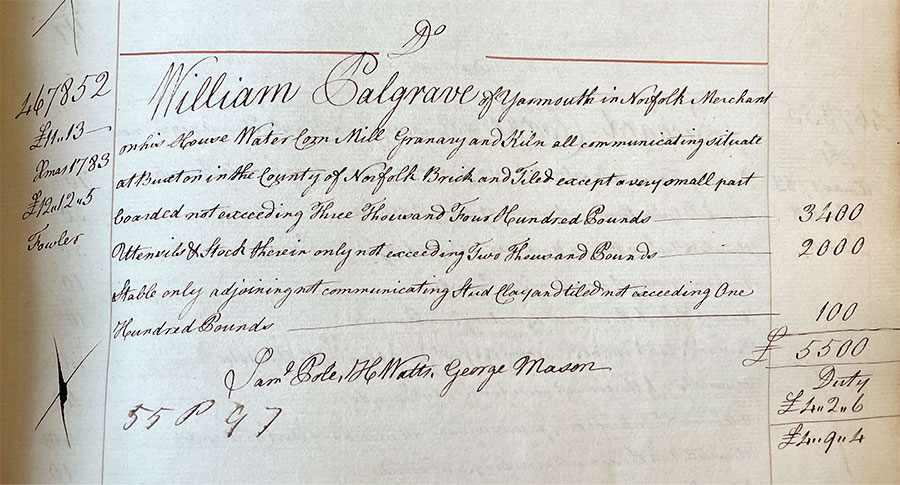 Do
467852
£11〃13 —
Xmas 1783
£12〃12〃5
Fowler
William Palgrave of Yarmouth in Norfolk Merchant
on his House Water Corn Mill Granary and Kiln all communicating situate
at Buxton in the County of Norfolk Brick and Tiled except a very small part
boarded not exceeding Three Thousand Four Hundred Pounds — 3400
Utensils & Stock therein only not exceeding Two Thousand Pounds — 2000
Stable only adjoining not communicating Stud Clay and tiled not exceeding One
Hundred Pounds — 100
£ 5500
Saml Pole, H Watts, George Mason
Duty
£4〃2〃6
£4〃9〃4
55 P 97